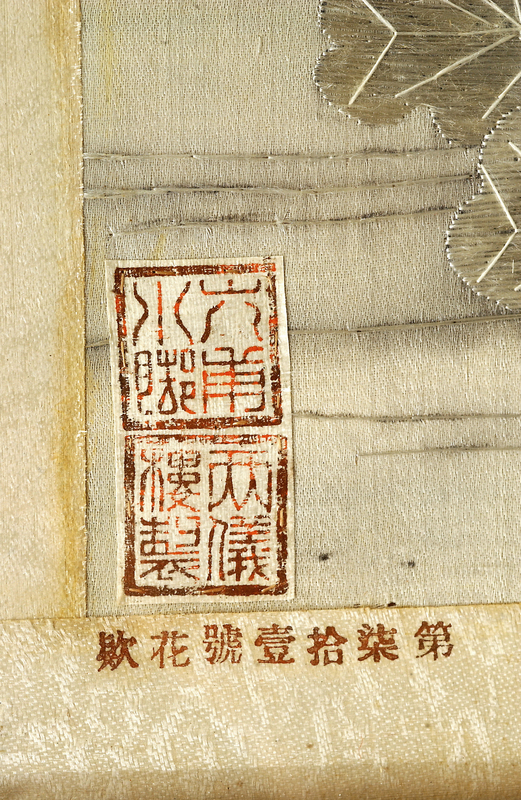 六甫
水脚
兩儀
樓製
第柒拾壹號花欵